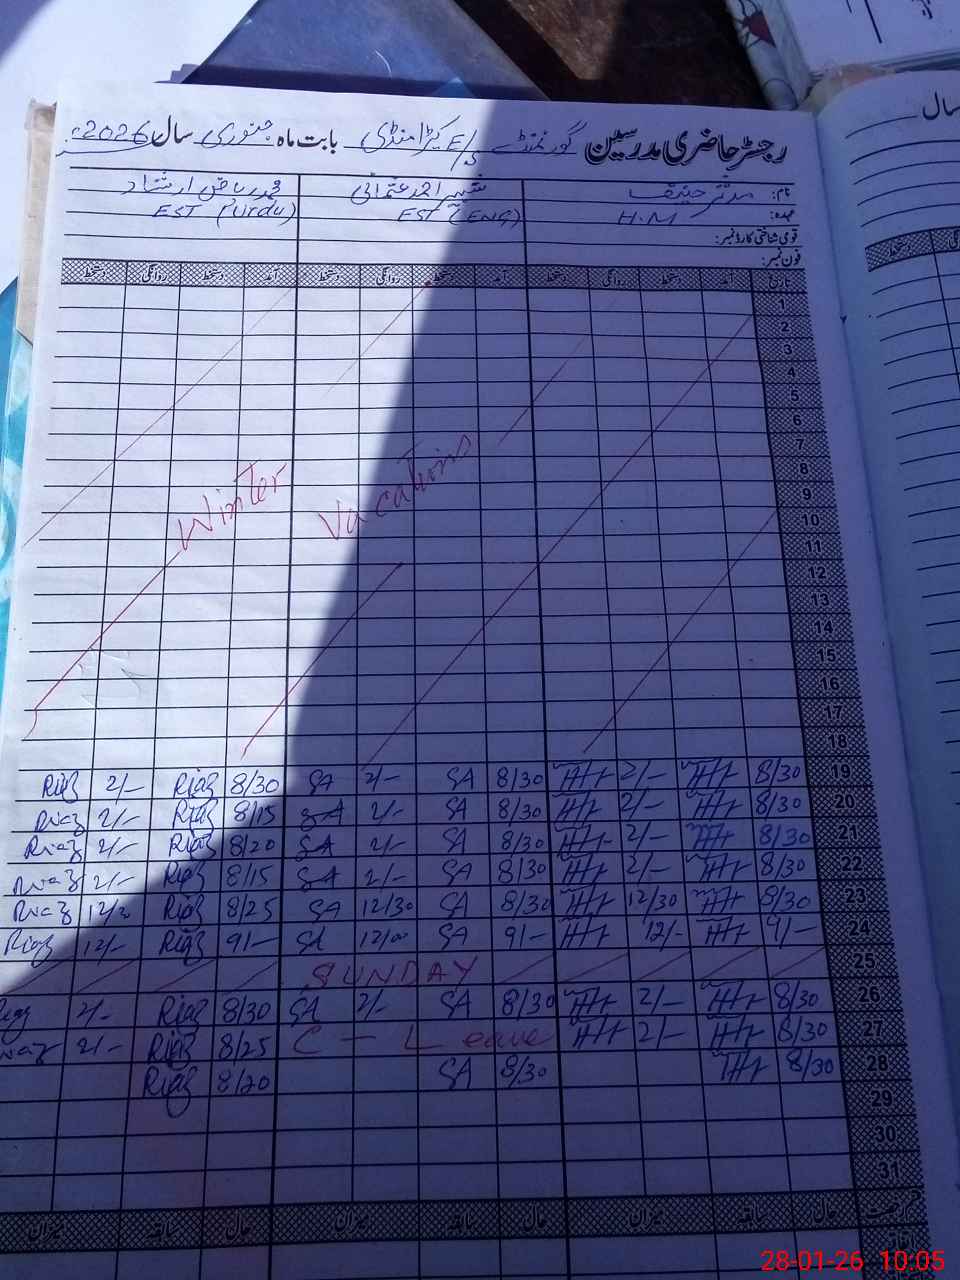 رجسٹر حاضری مدرسین گورنمنٹ E/S کیڑا منڈی بابت ماہ جنوری سال 2026ء
نام: مدثر حنیف شبیر احمد عثمانی محمد ریاض ارشاد
عہدہ: H.M EST (ENG) EST (Urdu)
قومی شناختی کارڈ نمبر:
فون نمبر:
تاریخ آمد دستخط روانگی دستخط آمد دستخط روانگی دستخط آمد دستخط روانگی دستخط
1
2
3
4
5
6
7
8
9
Winter Vacations
10
11
12
13
14
15
16
17
18
19 8/30 2/- 8/30 SA 2/- SA 8/30 Riaz 2/- Riaz
20 8/30 2/- 8/30 SA 2/- SA 8/15 Riaz 2/- Riaz
21 8/30 2/- 8/30 SA 2/- SA 8/20 Riaz 2/- Riaz
22 8/30 2/- 8/30 SA 2/- SA 8/15 Riaz 2/- Riaz
23 8/30 12/30 8/30 SA 12/30 SA 8/25 Riaz Riaz
24 9/- 12/- 9/- SA 12/00 SA 9/- Riaz 12/- Riaz
25 SUNDAY
26 8/30 2/- 8/30 SA 2/- SA 8/30 Riaz 2/-
27 8/30 2/- C - Leave 8/25 Riaz 2/-
28 8/30 8/30 SA 8/20 Riaz
29
30
31
حال سابقہ میزان حال سابقہ میزان حال سابقہ میزان
سال
28-01-26 10:05